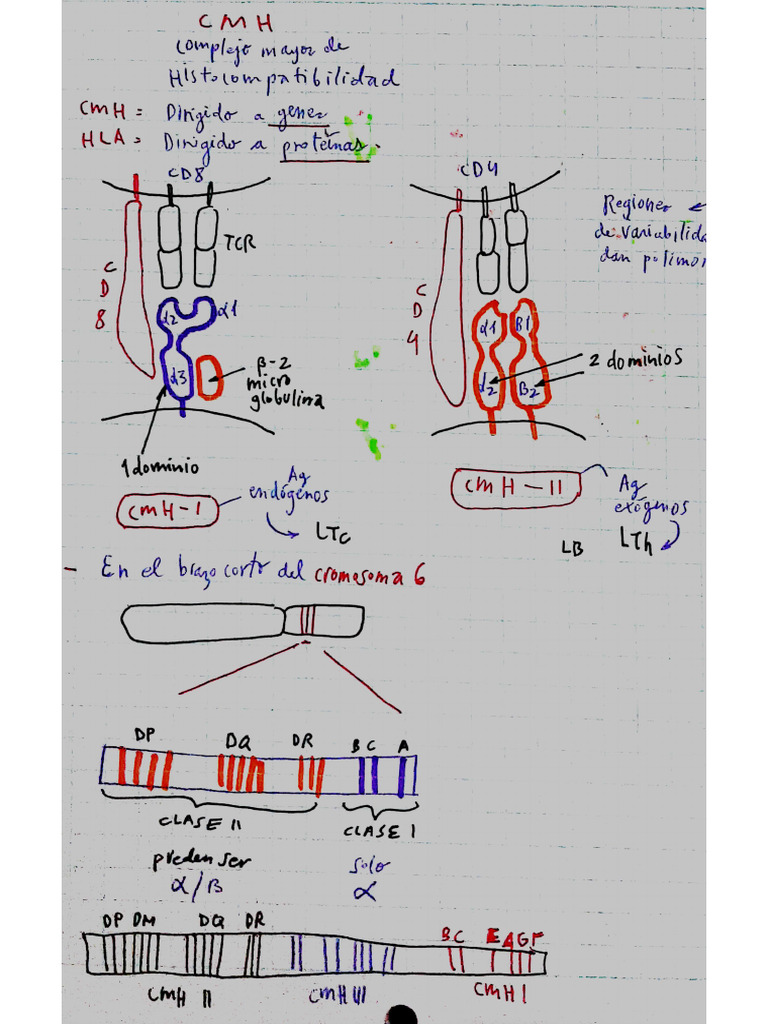 CMH
Complejo mayor de
Histocompatibilidad
CMH = Dirigido a genes
HLA = Dirigido a proteínas.
CD8
TCR
CD8
α2
α1
α3
β-2
micro
globulina
1 dominio
CMH-I
Ag
endógenos
LTc
CD4
Regiones ←
de variabilida
dan polimor
CD4
α1
B1
α2
B2
2 dominios
CMH-II
Ag
exógenos
LTh
LB
- En el brazo corto del cromosoma 6
DP DQ DR B C A
CLASE II
CLASE I
preden ser
α/B
solo
α
DP DM DQ DR B C E A G F
CMH II
CMH III
CMH I